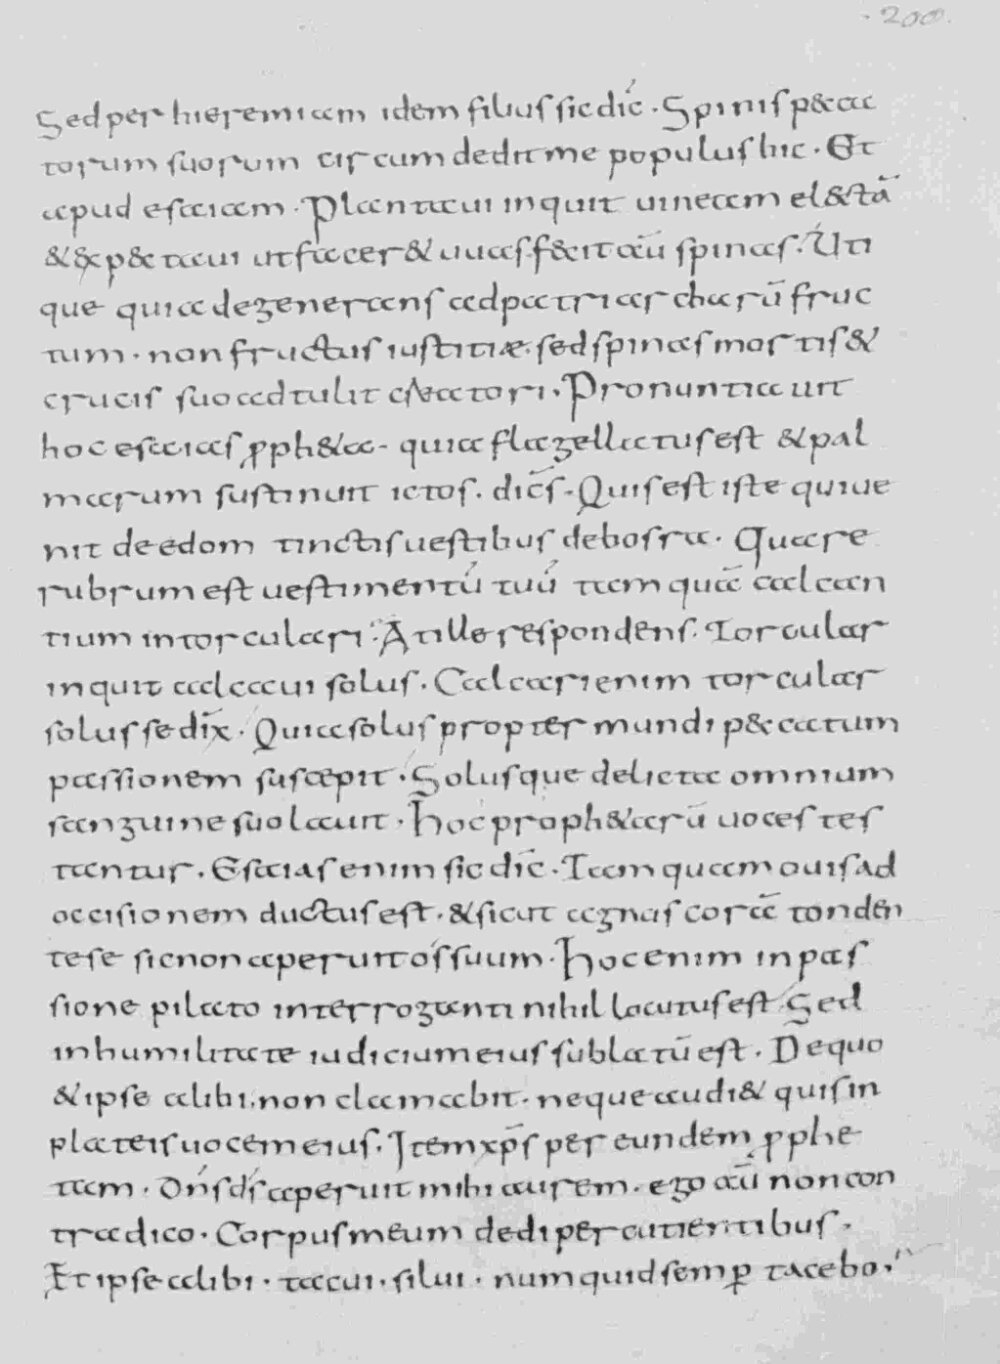 200.
Sed per hieremiam idem filius sic dic̄. Spinis p&ca
torum suorum circumdedit me populus hic. Et
apud esaiam. Plantaui inquit uineam el&tā
& &p&taui ut facer& uuas. f&cit aū spinas. Uti
que quia degenerans ad patriarcharū fruc
tum. non fructus iustitiæ. sed spinas mortis &
crucis suo adtulit creatori. Pronuntiauit
hoc esaias pph&a. quia flagellatus est & pal
marum sustinuit ictos. dic̄s. Quis est iste qui ue
nit de edom tinctis uestibus de bosra. Quare
rubrum est uestimentū tuū tam quā calcan
tium in torculari. At ille respondens. Torcular
inquit calcaui solus. Calcari enim torcular
solus se dix̄. Quia solus propter mundi p&catum
passionem suscepit. Solusque delicta omnium
sanguine suo lauit. Hoc proph&arū uoces tes
tantur. Esaias enim sic dic̄. Tam quam ouis ad
occisionem ductus est. & sicut agnus corā tonden
te se sic non aperuit os suum. Hoc enim in pas
sione pilato interroganti nihil locutus est. Sed
in humilitate iudicium eius sublatū est. De quo
& ipse alibi. non clamabit. neque audi& quis in
plateis uocem eius. Item xp̄s per eundem pphe
tam. Dn̄s d̄s aperuit mihi aurem. ego aū non con
tradico. Corpus meum dedi percutientibus.
Et ipse alibi. tacui. silui. numquid semp tacebo.